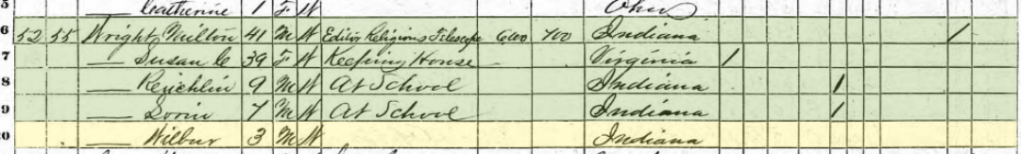 Catherine 1 F W Ohio
6 52 55 Wright, Milton 41 M W Editor Religious Telescope 6,000 700 Indiana 1
7 — Susan C 39 F W Keeping House Virginia 1
8 — Reuchlin 9 M W At School Indiana 1
9 — Lorin 7 M W At School Indiana 1
20 — Wilbur 3 M W Indiana